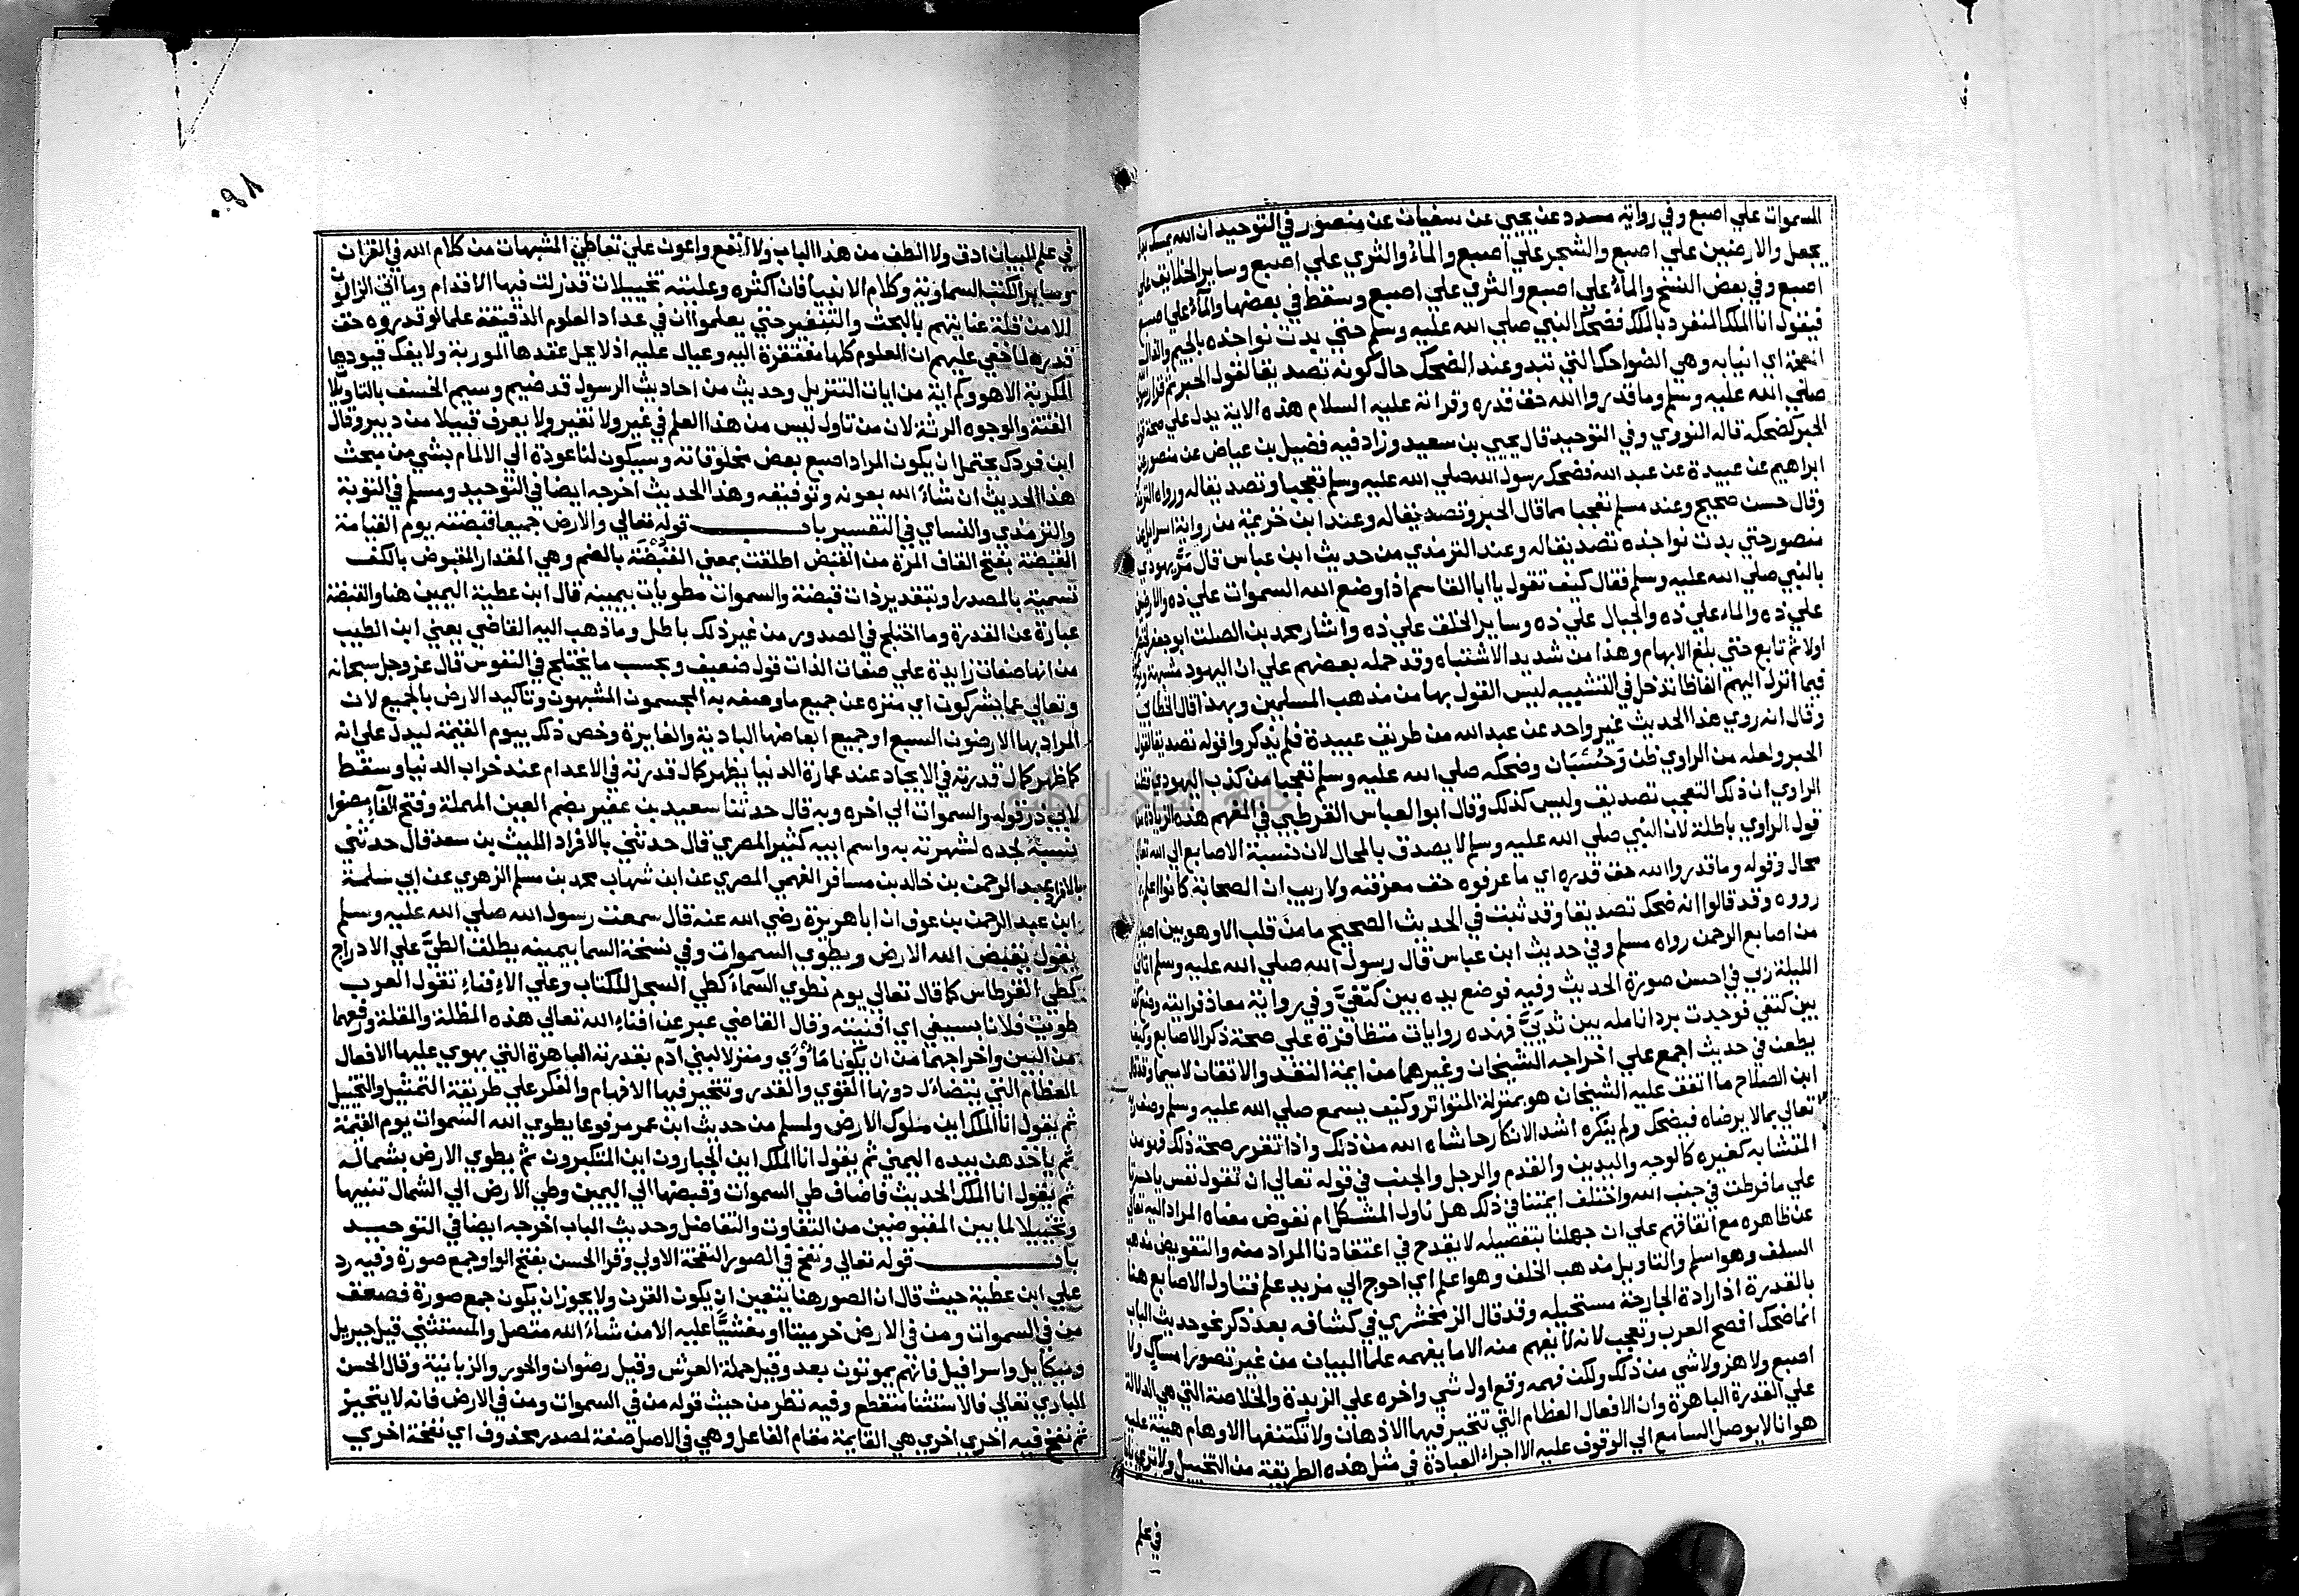 السموات علي اصبع وفي رواية مسدد عن يحيي عن سفيان عن منصور في التوحيد ان الله يمسك
يجعل والارضين علي اصبع والشجر علي اصبع والماء والثري علي اصبع وساير الخلايق علي
اصبع وفي بعض النسخ والماء علي اصبع والثري علي اصبع وسقط في بعضها والماء علي اصبع
فيقول انا الملك المنفرد بالملك فضحك النبي صلي الله عليه وسلم حتي بدت نواجذه بالجيم والذال
اي انيابه وهي الضواحك التي تبدو عند الضحك حال كونه تصديقا لقول الحبر ثم قرا رسول
صلي الله عليه وسلم وما قدروا الله حق قدره وقراته عليه السلام هذه الاية يدل علي صحة قول
الحبر كضحكه قاله النووي وفي التوحيد قال يحيي بن سعيد وزاد فيه فضيل بن عياض عن منصور عن
ابراهيم عن عبيدة عن عبد الله فضحك رسول الله صلي الله عليه وسلم تعجبا وتصديقا له ورواه الترمذي
وقال حسن صحيح وعند مسلم تعجبا مما قال الحبر وتصديقا له وعند ابن خزيمة من رواية اسرائيل عن
منصور حتي بدت نواجذه تصديقا له وعند الترمذي من حديث ابن عباس قال مر يهودي
بالنبي صلي الله عليه وسلم فقال كيف تقول يا ابا القاسم اذا وضع الله السموات علي ذه والارض
علي ذه والماء علي ذه والجبال علي ذه وساير الخلق علي ذه واشار محمد بن الصلت ابو جعفر
اولا ثم تابع حتي بلغ الابهام وهذا من شديد الاشتباه وقد حمله بعضهم علي ان اليهود مشبهة
فيما انزل اليهم الفاظا تدخل في التشبيه ليس القول بها من مذهب المسلمين وبهذا قال الخطابي
وقال انه روي هذا الحديث غير واحد عن عبد الله من طريق عبيدة فلم يذكروا قوله تصديقا لقول
الحبر ولعله من الراوي ظن وحسبان وضحكه صلي الله عليه وسلم تعجبا من كذب اليهودي فظن
الراوي ان ذلك التعجب تصديق وليس كذلك وقال ابو العباس القرطبي في المفهم هذه الزيادة من
قول الراوي باطلة لان النبي صلي الله عليه وسلم لا يصدق بالمحال لان نسبة الاصابع الي الله تعالي
محال وقوله وما قدروا الله حق قدره اي ما عرفوه حق معرفته ولا ريب ان الصحابة كانوا اعلم
رووه وقد قالوا انه ضحك تصديقا وقد ثبت في الحديث الصحيح ما من قلب الا وهو بين اصبعين
من اصابع الرحمن رواه مسلم وفي حديث ابن عباس قال رسول الله صلي الله عليه وسلم اتاني
الليلة ربي في احسن صورة الحديث وفيه فوضع يده بين كتفي وفي رواية معاذ فرايته وضع كفه
بين كتفي فوجدت برد انامله بين ثديي فهذه روايات متظافرة علي صحة ذكر الاصابع وكيف
يطعن في حديث اجمع علي اخراجه الشيخان وغيرهما من ايمة النقد والاتقان لا سيما وقد قال
ابن الصلاح ما اتفق عليه الشيخان هو بمنزلة المتواتر وكيف يسمع صلي الله عليه وسلم وصف ربه
تعالي بما لا يرضاه فيضحك ولم ينكره اشد الانكار حاشاه الله من ذلك واذا تقرر صحة ذلك فهو من
المتشابه كغيره كالوجه واليدين والقدم والرجل والجنب في قوله تعالي ان تقول نفس يا حسرتا
علي ما فرطت في جنب الله واختلف ايمتنا في ذلك هل ناول المشكل ام نفوض معناه المراد اليه تعالي
عن ظاهره مع اتفاقهم علي ان جهلنا بتفصيله لا يقدح في اعتقادنا المراد منه والتفويض مذهب
السلف وهو اسلم والتاويل مذهب الخلف وهو اعلم اي احوج الي مزيد علم فتناول الاصابع هنا
بالقدرة اذ ارادة الجارحة مستحيله وقد قال الزمخشري في كشافه بعد ذكر نحو حديث الباب
انما ضحك افصح العرب وتعجب لانه لا يفهم منه الا ما يفهمه علما البيان من غير تصور امساك ولا
اصبع ولا هز ولا شي من ذلك ولكن فهمه وقع اول شي واخره علي الزبدة والخلاصة التي هي الدلالة
علي القدرة الباهرة وان الافعال العظام التي تتحير فيها الاذهان ولا تكتنفها الاوهام هينة عليه
هوانا لا يوصل السامع الي الوقوف عليه الا اجراء العبادة في مثل هذه الطريقة من التخييل ولا تري بابا
في علم
في علم البيان ادق ولا الطف من هذا الباب ولا انفع واعون علي تعاطي المشبهات من كلام الله في القران
وساير الكتب السماوية وكلام الانبيا فان اكثره وعليته تخييلات قد زلت فيها الاقدام وما اتي الزالون
الا من قلة عنايتهم بالبحث والتنقير حتي يعلموا ان في عداد العلوم الدقيقة علما لو قدروه حق
قدره لما خفي عليهم ان العلوم كلها مفتقرة اليه وعيال عليه اذ لا يحل عقدها الموربة ولا يفك قيودها
المكربة الا هو وكم اية من ايات التنزيل وحديث من احاديث الرسول قد ضيم وسيم الخسف بالتاويلا
الغثة والوجوه الرثة لان من تاول ليس من هذا العلم في عير ولا نقير ولا يعرف قبيلا من دبير وقال
ابن فورك يحتمل ان يكون المراد اصبع بعض مخلوقاته وسيكون لنا عودة الي الالمام بشي من مبحث
هذا الحديث ان شاء الله بعونه وتوفيقه وهذا الحديث اخرجه ايضا في التوحيد ومسلم في التوبة
والترمذي والنساي في التفسير باب قوله تعالي والارض جميعا قبضته يوم القيامة
القبضة بفتح القاف المرة من القبض اطلقت بمعني القبضة بالضم وهي المقدار المقبوض بالكف
تسمية بالمصدر او بتقدير ذات قبضة والسموات مطويات بيمينه قال ابن عطية اليمين هنا والقبضة
عبارة عن القدرة وما اختلج في الصدور من غير ذلك باطل وما ذهب اليه القاضي يعني ابن الطيب
من انها صفات زايدة علي صفات الذات قول ضعيف وبحسب ما يختلج في النفوس قال عز وجل سبحانه
وتعالي عما يشركون اي منزه عن جميع ما وصفه به المجسمون المشبهون وتاكيد الارض بالجميع لان
المراد بها الارضون السبع او جميع ابعاضها البادية والغايرة وخص ذلك بيوم القيمة ليدل علي انه
كما ظهر كمال قدرته في الايجاد عند عمارة الدنيا يظهر كمال قدرته في الاعدام عند خراب الدنيا وسقط
لابي ذر قوله والسموات الي اخره وبه قال حدثنا سعيد بن عفير بضم العين المهملة وفتح الفاء مصغرا
نسبة لجده لشهرته به واسم ابيه كثير المصري قال حدثني بالافراد الليث بن سعد قال حدثني
بالافراد عبد الرحمن بن خالد بن مسافر الفهمي المصري عن ابن شهاب محمد بن مسلم الزهري عن ابي سلمة
ابن عبد الرحمن بن عوف ان ابا هريرة رضي الله عنه قال سمعت رسول الله صلي الله عليه وسلم
يقول يقبض الله الارض ويطوي السموات وفي نسخة السما بيمينه يطلق الطي علي الادراج
كطي القرطاس كما قال تعالي يوم نطوي السماء كطي السجل للكتاب وعلي الافناء تقول العرب
طويت فلانا بسيفي اي افنيته وقال القاضي عبر عن افناء الله تعالي هذه المظلة والمقلة ورفعهما
من البين واخراجهما من ان يكونا ماوي ومنزلا لبني آدم بقدرته الباهرة التي يهوي عليها الافعال
العظام التي يتضاءل دونها القوي والقدر وتتحير فيها الافهام والفكر علي طريقة التمثيل والتخييل
ثم يقول انا الملك اين ملوك الارض ولمسلم من حديث ابن عمر مرفوعا يطوي الله السموات يوم القيمة
ثم ياخذهن بيده اليمني ثم يقول انا الملك اين الجبارون اين المتكبرون ثم يطوي الارض بشماله
ثم يقول انا الملك الحديث فاضاف طي السموات وقبضها الي اليمين وطي الارض الي الشمال تنبيها
وتخييلا لما بين المقبوضين من التفاوت والتفاضل وحديث الباب اخرجه ايضا في التوحيد
باب قوله تعالي ونفخ في الصور النفخة الاولي وقرا الحسن بفتح الواو جمع صورة وفيه رد
علي ابن عطية حيث قال ان الصور هنا يتعين ان يكون القرن ولا يجوز ان يكون جمع صورة فصعق
من في السموات ومن في الارض خر ميتا او مغشيا عليه الا من شاء الله متصل والمستثني قيل جبريل
وميكايل واسرافيل فانهم يموتون بعد وقيل حملة العرش وقيل رضوان والحور والزبانية وقال الحسن
الباري تعالي فالاستثنا منقطع وفيه نظر من حيث قوله من في السموات ومن في الارض فانه لا يتحيز
ثم نفخ فيه اخري اخري هي القايمة مقام الفاعل وهي في الاصل صفة لمصدر محذوف اي نفخة اخري